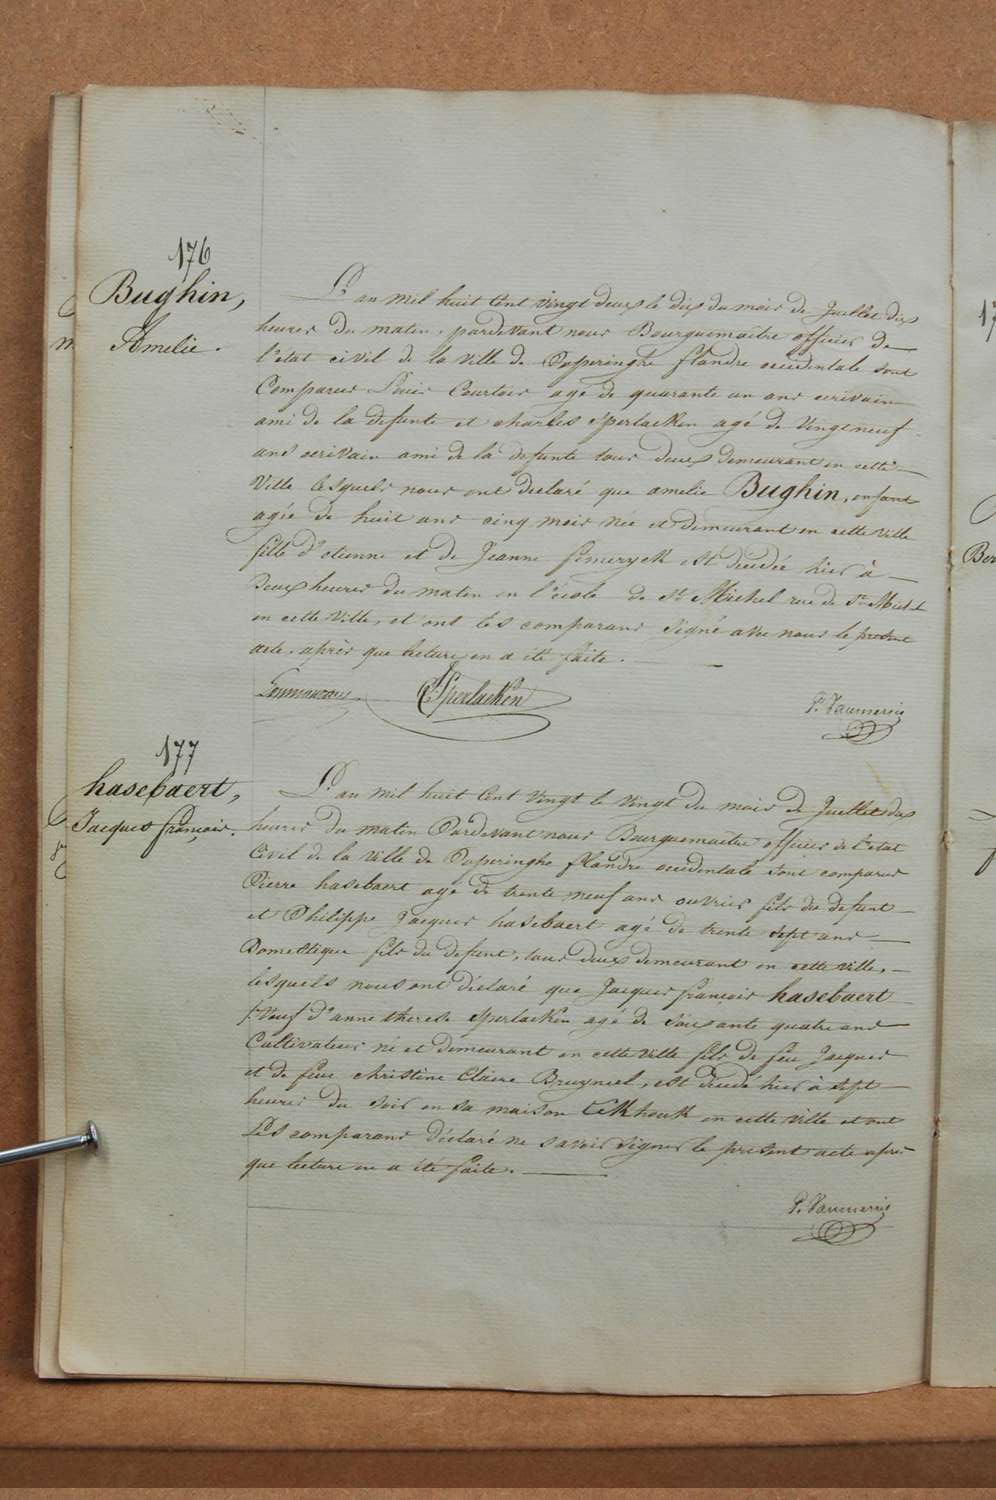 176
Bughin,
Amelie.
L'an mil huit Cent vingt deux le dix du mois de Juillet dix
heures du matin, pardevant nous Bourguemaître officier de
l'état civil de la ville de Poperinghe flandre occidentale sont
Comparus Louis Courtois agé de quarante un ans ecrivain
ami de la defunte et charles Sperlacken agé de Vingt neuf
ans ecrivain ami de la defunte tous deux demeurant en cette
Ville lesquels nous ont declaré que amelie Bughin, enfant
agée de huit ans cinq mois née et demeurant en cette ville
fille d'etienne et de Jeanne femeryck est decedée hier à
Deux heures du matin en l'école de St Michel rue de St Michel
en cette Ville, et ont les comparans signé avec nous le present
acte, après que lecture en a été faite.
Sperlacken
P. Vanmerris
177
hasebaert,
Jacques françois.
L'an mil huit Cent vingt le vingt du mois de Juillet dix
heures du matin Pardevant nous Bourguemaître officier de l'etat
Civil de la Ville de Poperinghe flandre occidentale sont comparus
Pierre hasebaert agé de trente neuf ans ouvrier fils du defunt
et Philippe Jacques hasebaert agé de trente sept ans
Domestique fils du defunt, tous deux demeurant en cette ville,
lesquels nous ont déclaré que Jacques françois hasebaert
Veuf d'anne therese Sperlacken agé de Soixante quatre ans
Cultivateur né et demeurant en cette ville fils de feu Jacques
et de feue christine Claire Bruyneel, est decedé hier à sept
heures du soir en sa maison Eekhoek en cette ville et ont
Les comparans déclaré ne savoir signer le present acte après
que lecture en a été faite.
P. Vanmerris